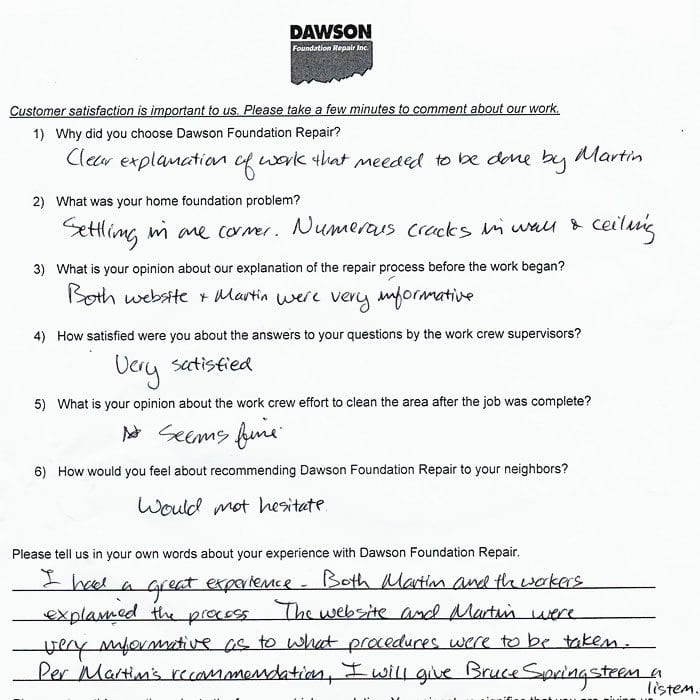 DAWSON
Foundation Repair Inc.
Customer satisfaction is important to us. Please take a few minutes to comment about our work.
1) Why did you choose Dawson Foundation Repair?
Clear explanation of work that needed to be done by Martin
2) What was your home foundation problem?
Settling in one corner. Numerous cracks in wall & ceiling
3) What is your opinion about our explanation of the repair process before the work began?
Both website + Martin were very informative
4) How satisfied were you about the answers to your questions by the work crew supervisors?
Very satisfied
5) What is your opinion about the work crew effort to clean the area after the job was complete?
Seems fine.
6) How would you feel about recommending Dawson Foundation Repair to your neighbors?
Would not hesitate.
Please tell us in your own words about your experience with Dawson Foundation Repair.
I had a great experience - Both Martin and the workers
explained the process The website and Martin were
very informative as to what procedures were to be taken.
Per Martin's recommendation, I will give Bruce Springsteen a
listen.